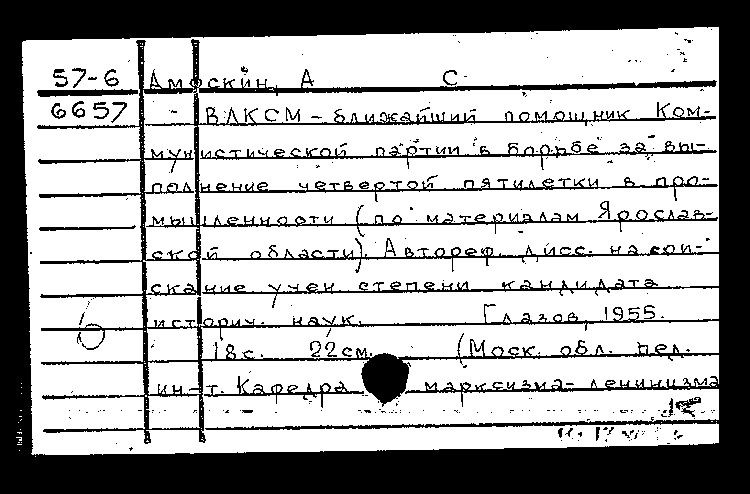 57-6 Амоскин, А С.
6657 - ВЛКСМ - ближайший помощник Ком-
мунистической партии в борьбе за вы-
полнение четвертой пятилетки в про-
мышленности (по материалам Ярослав-
ской области). Автореф. дисс. на соис-
скание учен. степени кандидата
историч. наук. Глазов, 1955.
18 с. 22 см. (Моск. обл. пед.
ин-т. Кафедра марксизма-ленинизма
б